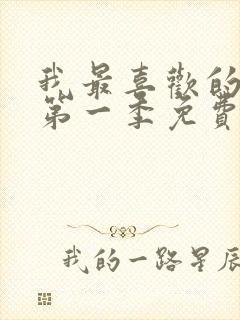 我最喜歡的
第一季免費
我的一路星辰